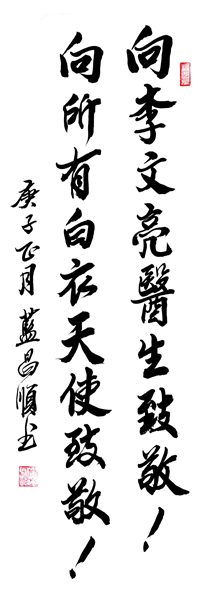 向李文亮醫生致敬！
向所有白衣天使致敬！
庚子正月 藍昌順书